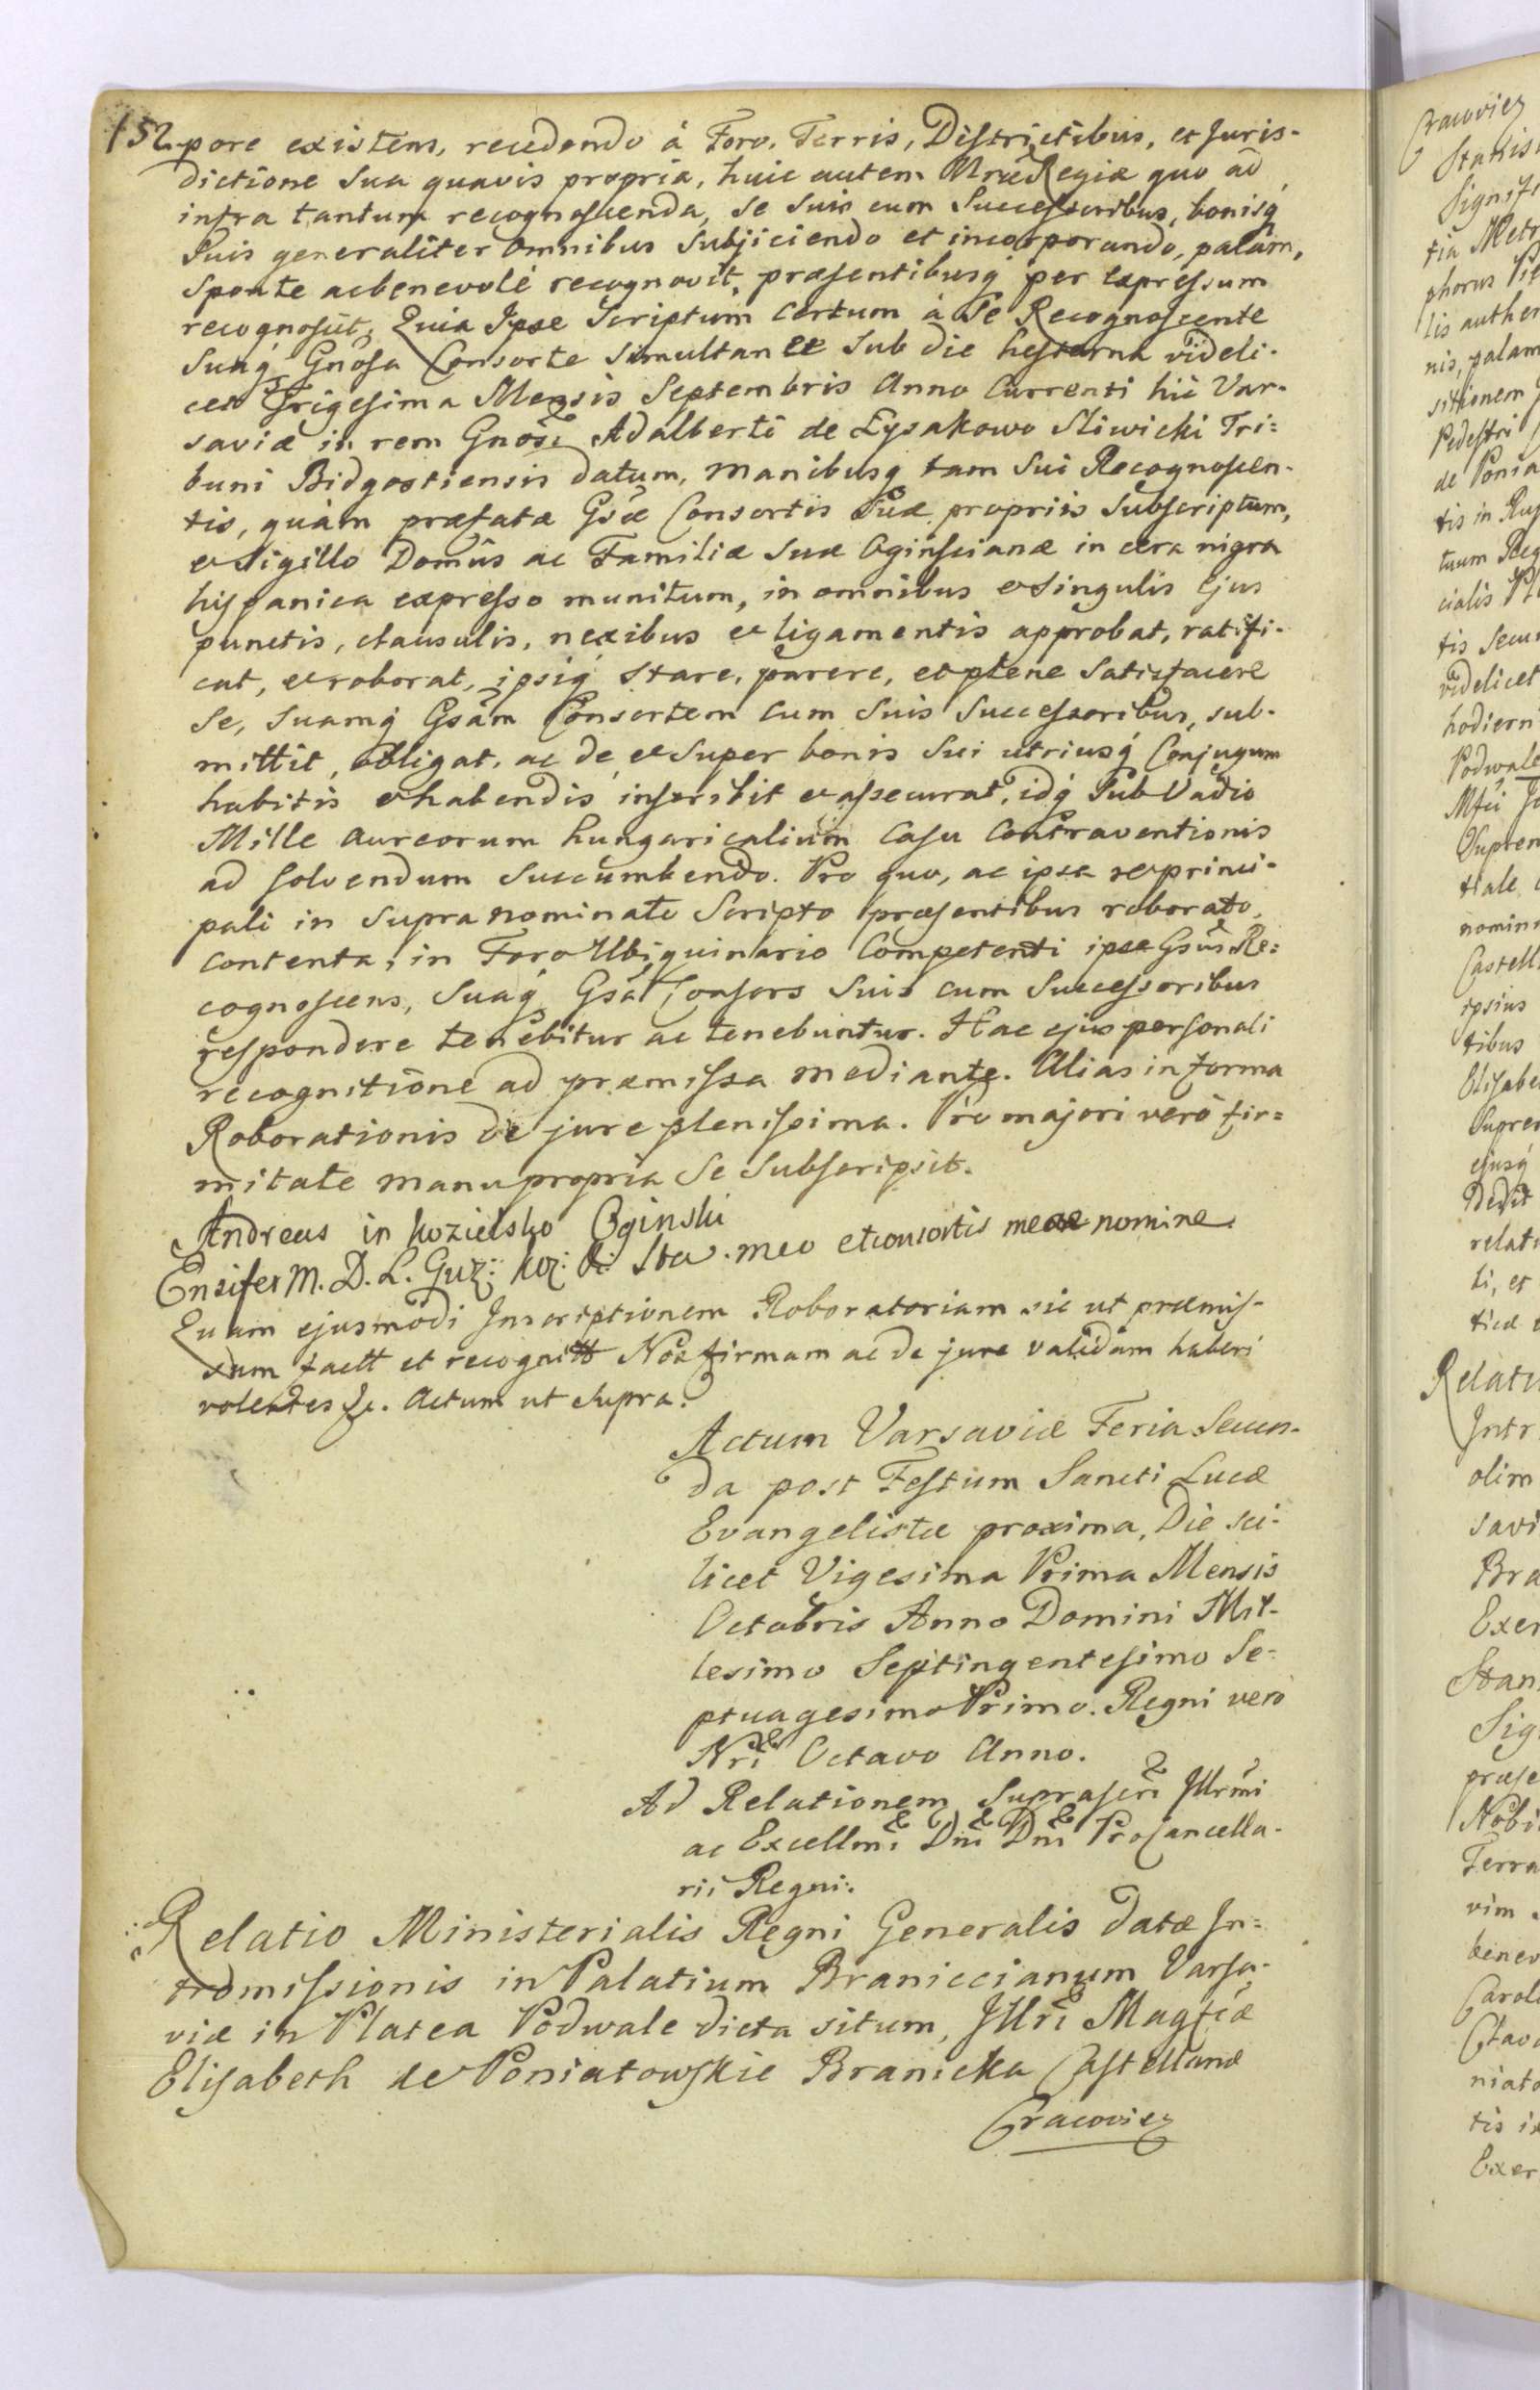 152. pore existens, recedendo á Foro, Terris, Districtibus, et Juris-
dictione sua quavis propria, huic autem Mriæ Regiæ quo ad
infra tantum recognoscenda, se suis cum Successoribus, bonisq
suis generaliter omnibus subjiciendo et incorporando, palam,
sponte ac benevolè recognovit, præsentibusq per expressum
recognoscit; Quia Ipse Scriptum certum à Se Recognoscente
suaq Gnosa Consorte simultanee sub die hesterna videli-
cet Trigesima Mensis Septembris Anno Currenti hic Var-
saviæ in rem Gnosi Adalberti de Lysakowo Sliwicki Tri=
buni Bidgostiensis datum, manibusq tam sui Recognoscen-
tis, quàm præfatæ Gsæ Consortis suæ propriis subscriptum,
et sigillo Domûs ac Familiæ suæ Oginscianæ in cera nigra
hispanica expresso munitum, in omnibus et singulis ejus
punctis, clausulis, nexibus et ligamentis approbat, ratifi-
cat, et roborat, ipsiq stare, parere, et plene satisfacere
se, suamq Gsám Consortem cum suis Successoribus, sub-
mittit, obligat, ac de et super bonis sui utriusq Conjugum
habitis et habendis inscribit et assecurat, idq sub Vadio
Mille aureorum hungaricalium casu Contraventionis
ad solvendum succumbendo. Pro quo, ac ipsa re principali
pali in supra nominato Scripto præsentibus roborato,
contenta, in Foro Ubiquinario Competenti ipse Gsus Re=
cognoscens, suaq Gsa Consors suis cum Successoribus
respondere tenebitur ac tenebuntur. Hac ejus personali
recognitione ad præmissa mediante. Alias in forma
Roborationis de jure plenissima. Pro majori verò fir=
mitate manu propria se subscripsit.
Andreas in Kozielsko Oginski
Ensifer M. D. L. Guz: Koz: &: Sta. meo et consortis meae nomine.
Quam ejusmodi Inscriptionem Roboratoriam sic ut præmis-
sum factt et recognitt Nos firmam ac de jure validam haberi
volentes &c. Actum ut supra.
Actum Varsaviæ Feria Secun-
da post Festum Sancti Lucæ
Evangelistæ proxima, Die sci-
licet Vigesima Prima Mensis
Octobris Anno Domini Mil-
lesimo Septingentesimo Se-
ptuagesimo Primo. Regni vero
Nri Octavo Anno.
Ad Relationem Suprascri Illrmi
ac Excellmi Dni Dni ProCancella-
rii Regni.
Relatio Ministerialis Regni Generalis datæ In=
tromissionis in Palatium Braniccianum Varsa-
viæ in Platea Podwale dicta situm, Illri Magficæ
Elisabeth de Poniatowskie Branicka Castellanæ
Cracovien